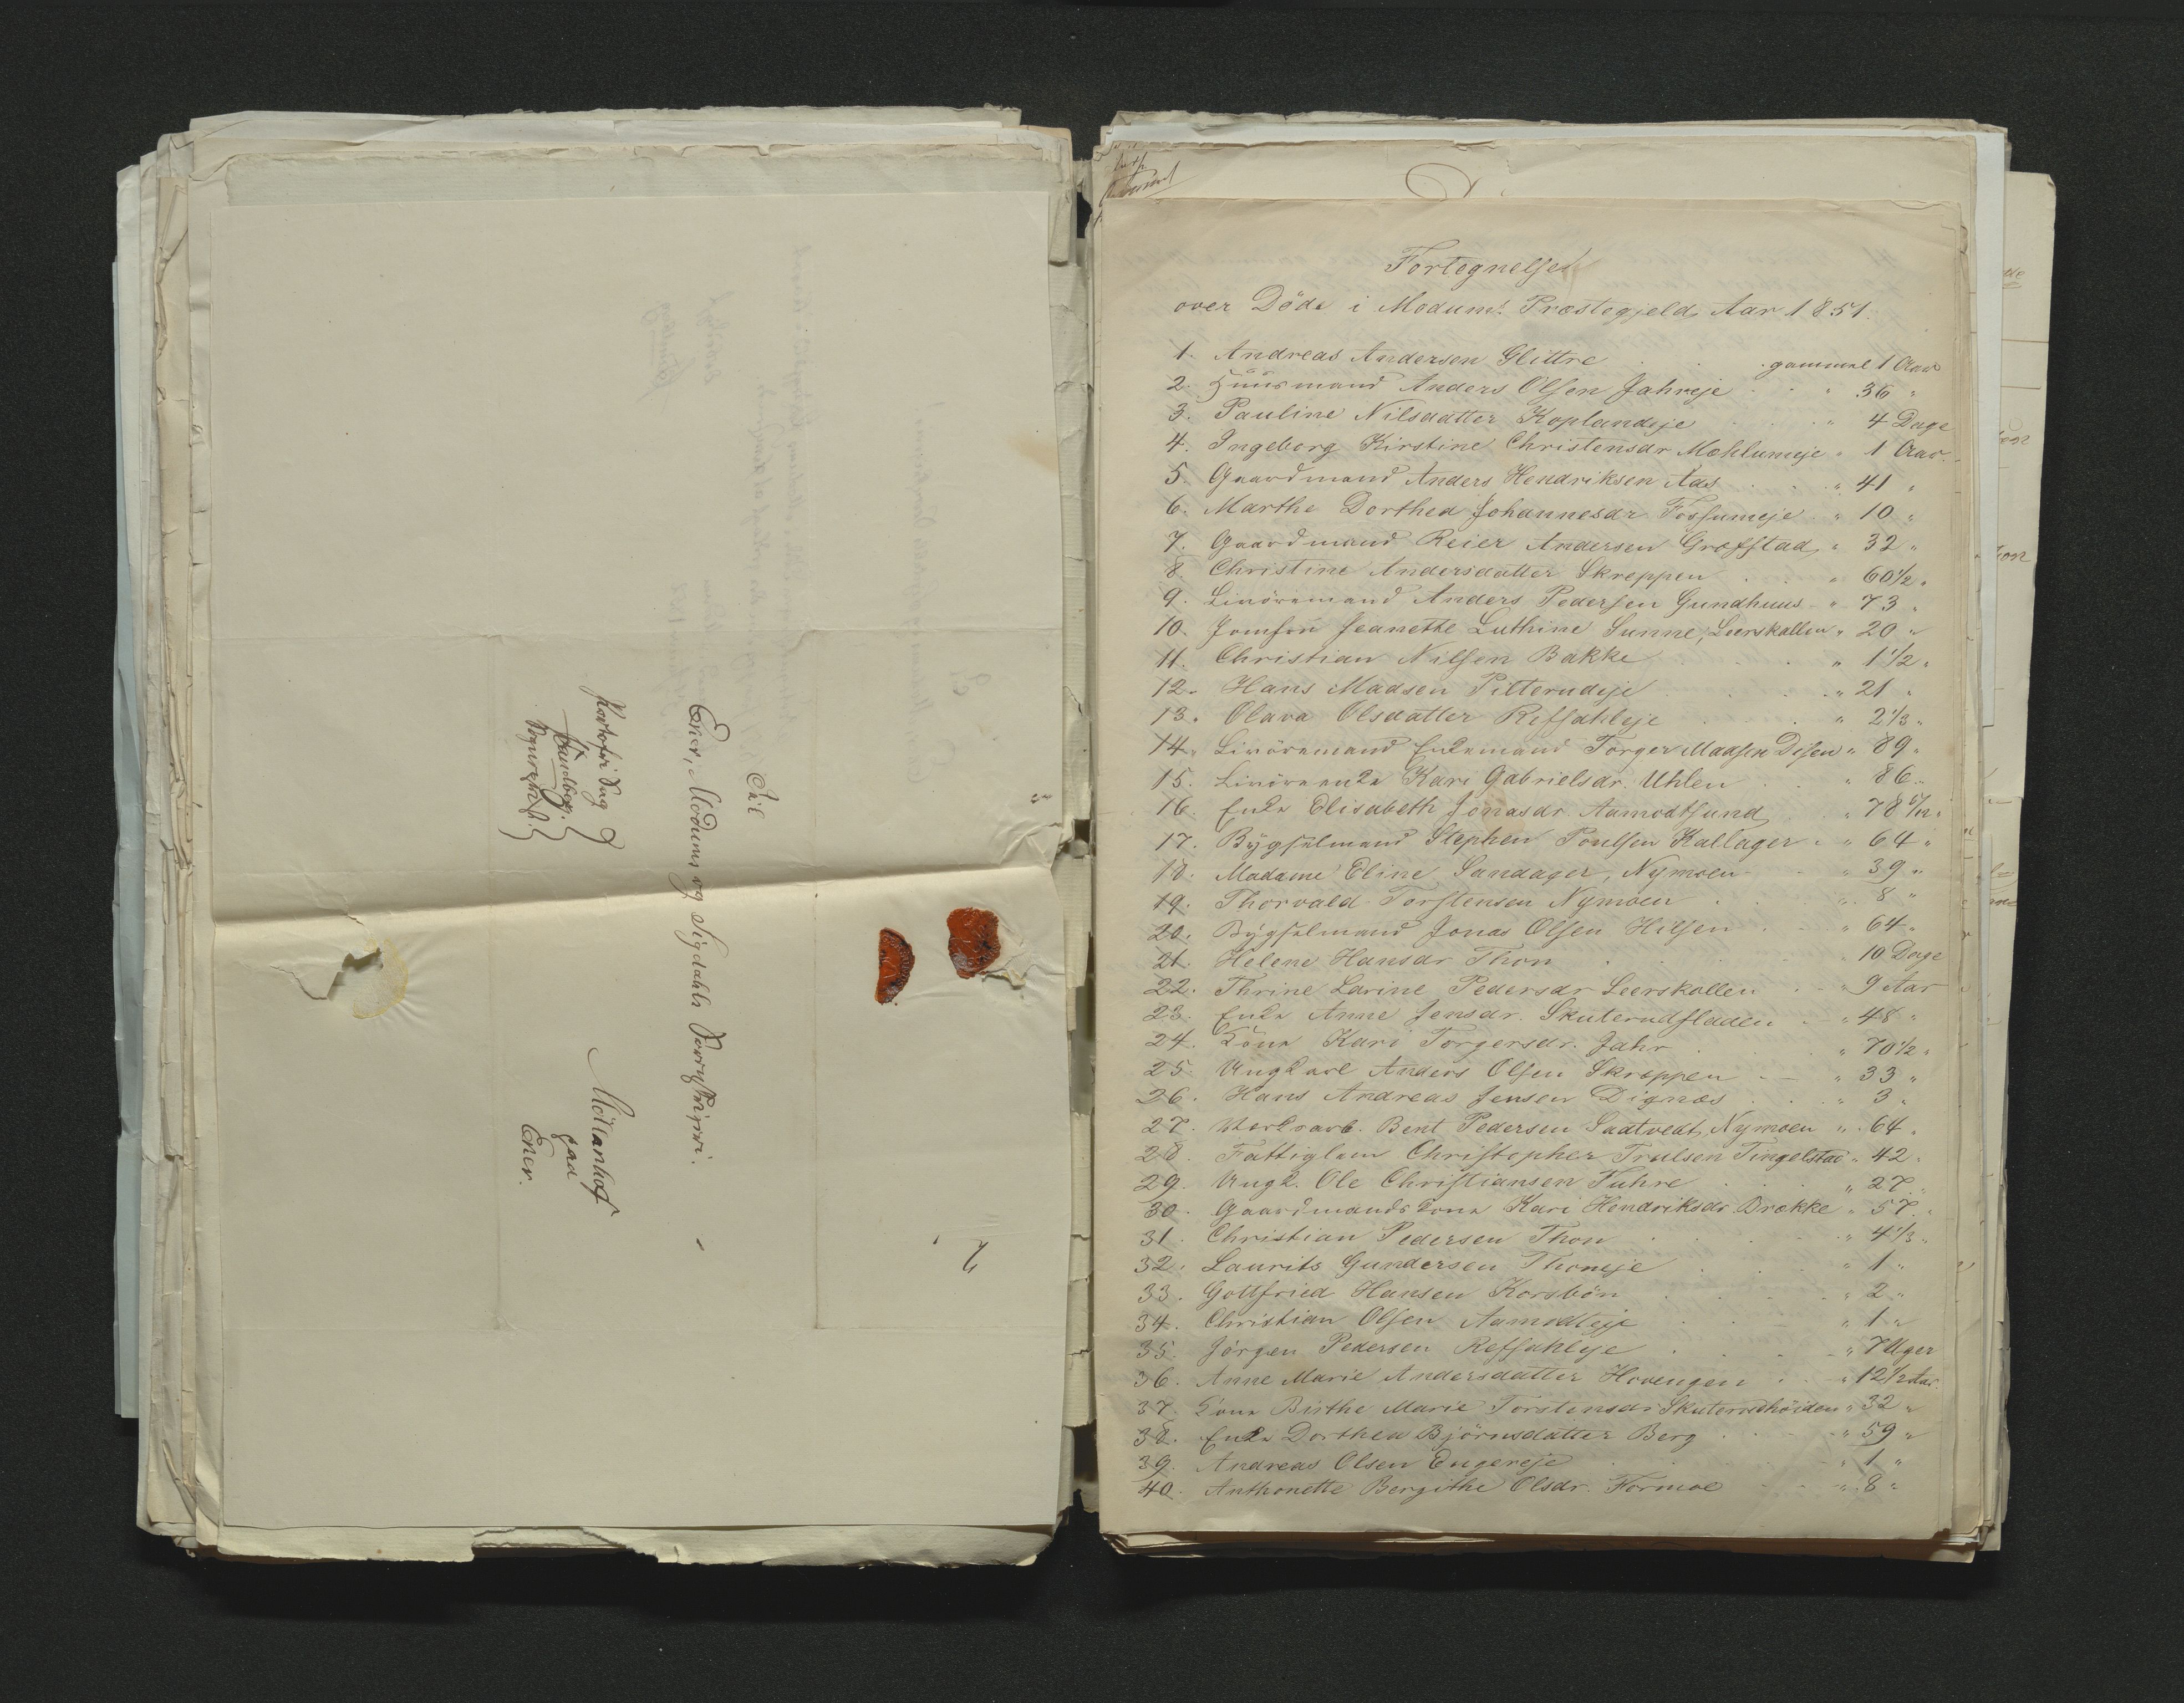 Til
Eker, Modums og Sigdahls Sorenskriveri.
Möllenhof
pad
Eker.
Fortegnelse
over Döde i Modums Præstegjeld Aar 1851.
1. Andreas Andersen Glittre gammel 1 Aar
2. Huusmand Anders Olsen Jahreje " 36 "
3. Pauline Nilsdatter Koplandeje " 4 Dage
4. Ingeborg Kirstine Christensdr Mæhlumeje " 1 Aar.
5. Gaardmand Anders Hendriksen Aas " 41 "
6. Marthe Dorthea Johannesdr. Fossumeje " 10 "
7. Gaardmand Reier Andersen Grøfstad " 32 "
8. Christine Andersdatter Skreppen " 60 1/2 "
9. Livöremand Anders Pedersen Gundhuus " 73 "
10. Jomfru Jeanette Luthine Sunne, Leerskallen " 20 "
11. Christian Nilsen Bakke " 1 1/2 "
12. Hans Madsen Pitterudeje " 21 "
13. Olava Olsdatter Refsahleje " 2 1/3 "
14. Livöremand Enkemand Torger Madsen Disen " 89 "
15. Livöreenke Kari Gabrielsdr. Uhlen " 86 "
16. Enke Elisabeth Jonasdr. Aamodtsund " 78 "
17. Bygselmand Stephen Poulsen Kallager " 64 "
18. Madame Eline Sandager, Nymoen " 39 "
19. Thorvald Torstensen Nymoen " 8 "
20. Bygselmand Jonas Olsen Hilsen " 64 "
21. Helene Hansdr Thon " 10 Dage
22. Thrine Larine Pedersdr Leerskallen " 9 Aar
23. Enke Anne Jensdr. Skuterudfladen " 48 "
24. Kone Kari Torgersdr. Jahr " 70 1/2 "
25. Ungkarl Anders Olsen Skreppen " 33 "
26. Hans Andreas Jensen Dignæs " 3 "
27. Værksarb. Bent Pedersen Saatvedt, Nymoen " 64 "
28. Fattiglem Christopher Trulsen Tingelstad " 42 "
29. Ungk. Ole Christiansen Fuhre " 27 "
30. Gaardmandskone Kari Hendriksdr Brække " 57 "
31. Christian Pedersen Thon " 4 1/3 "
32. Laurits Gundersen Thoneje " 1 "
33. Gottfried Hansen Korsbön " 2 "
34. Christian Olsen Aamodteje " 1 "
35. Jörgen Pedersen Refsahleje " 7 Uger
36. Anne Marie Andersdatter Hovengen " 12 1/2 Aar
37. Kone Birthe Marie Torstensdr Skuterudhöiden " 32 "
38. Enke Dorthea Björnsdatter Berg " 59 "
39. Andreas Olsen Engereje " 1 "
40. Anthonette Bergithe Olsdr. Formoe " 8 "